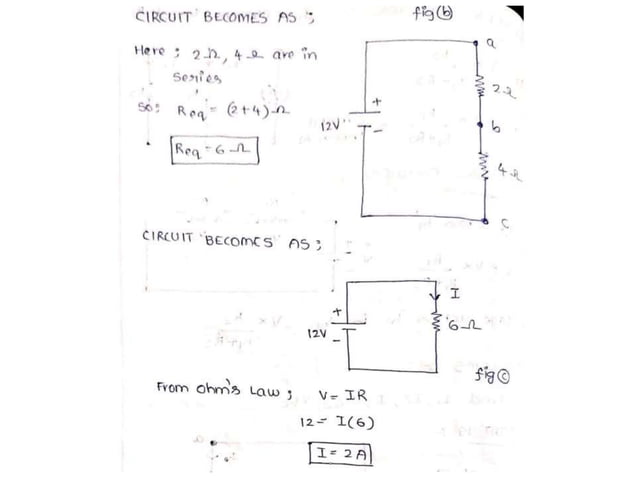 CIRCUIT BECOMES AS ; fig(b)
Here ; 2Ω, 4Ω are in
Series
So; Req = (2+4)Ω
Req = 6Ω
a
2Ω
+
12V
-
b
4Ω
c
CIRCUIT BECOMES AS ;
I
+
12V
-
6Ω
fig(c)
From ohm's Law ; V = IR
12 = I(6)
I = 2A